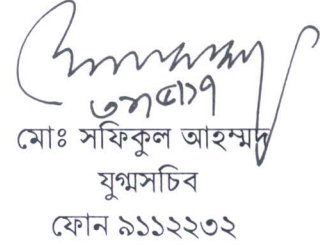 মোঃ সফিকুল আহম্মদ
যুগ্মসচিব
ফোন ৯১১২২৩২